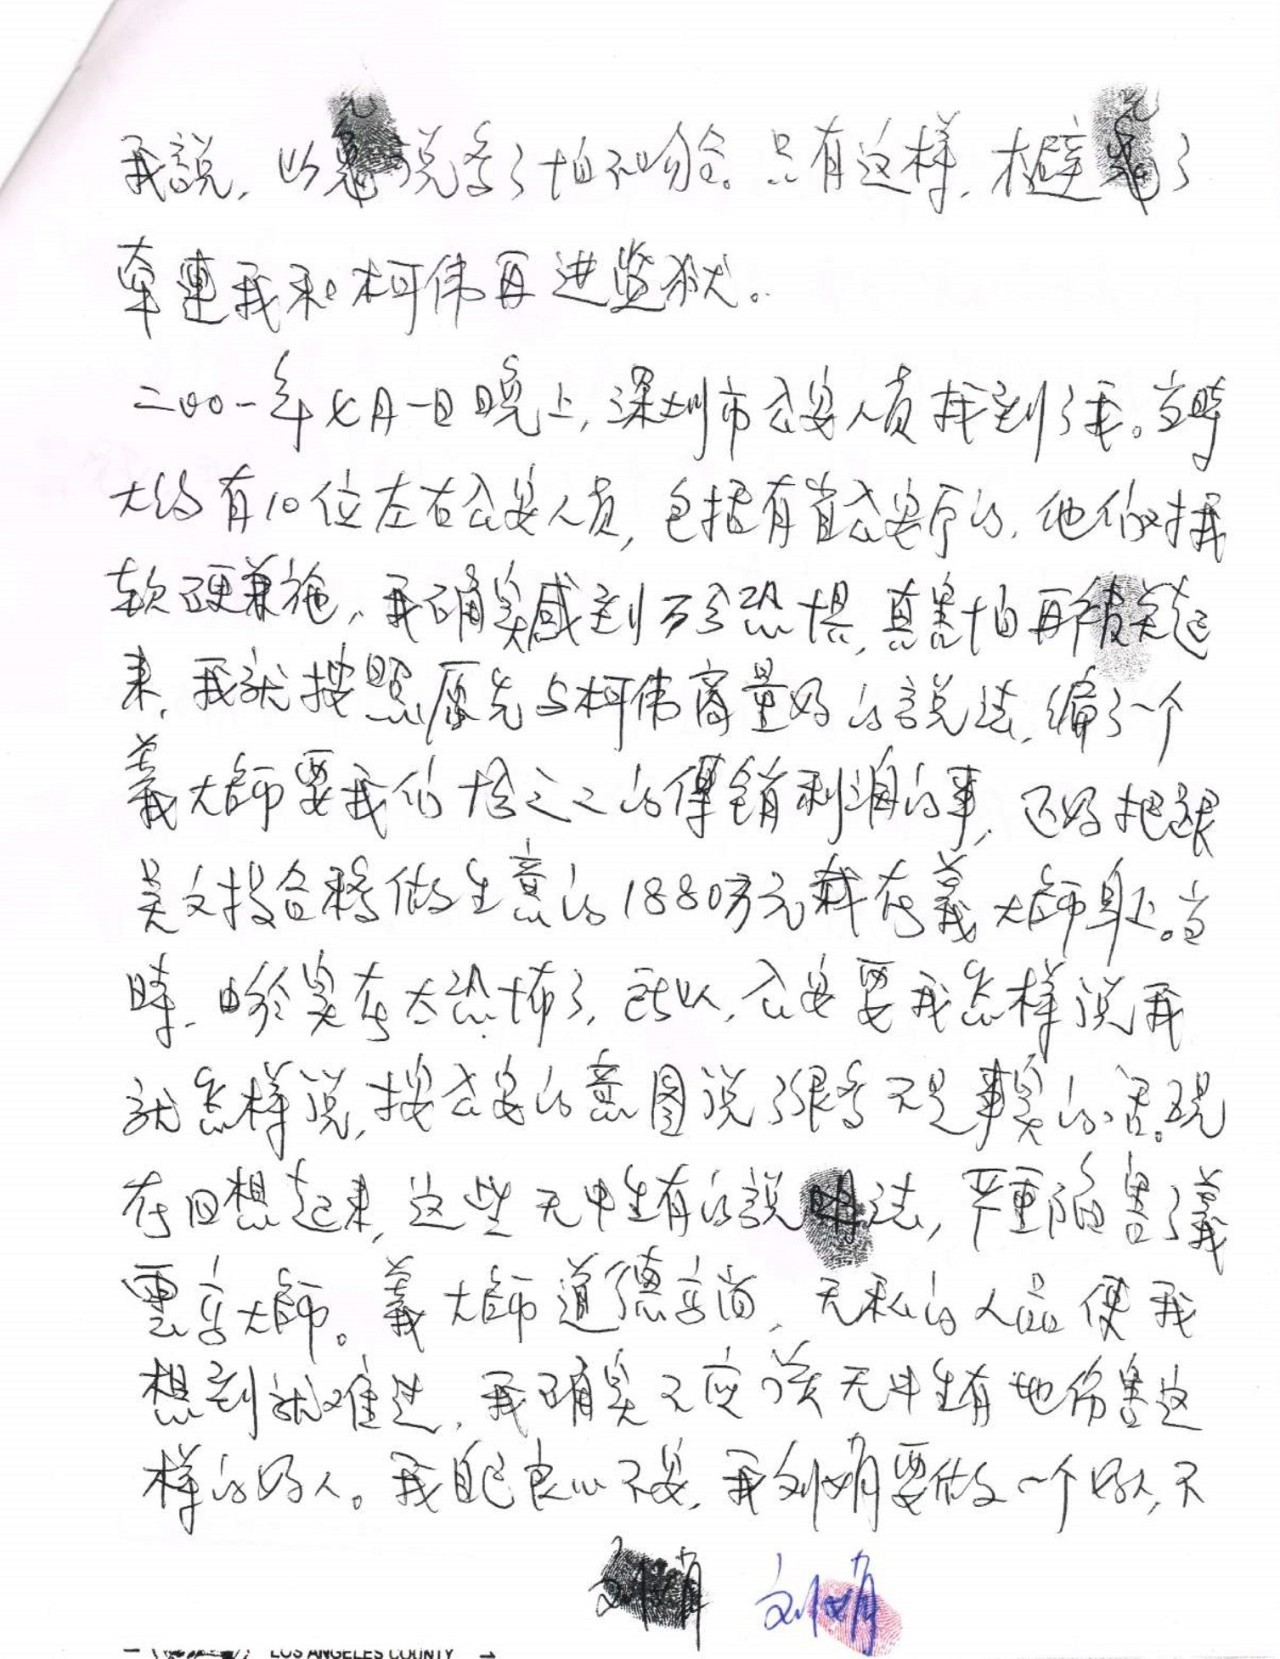 我説，以免说多了怕不吻合。只有这样，才避免了
牽連我和柯伟再进监狱。
二00一年七月一日晚上，深圳市公安人员找到了我。当時
大约有10位左右公安人员，包括有省公安厅的，他们对我
软硬兼施，我确实感到万分恐惧，真害怕再被关起
来，我就按照原先与柯伟商量好的説法，编了一个
義大師要我们十分之二的傳銷利润的事，还好把跟
吴文投合夥做生意的1880万元栽在義大師身上。当
時，由於实在太恐怖了，所以，公安要我怎样说我
就怎样说，按公安的意图说了很多不是事实的话。现
在回想起来，这些无中生有的説法，严重陷害了義
雲高大師。義大師道德高尚，无私的人品使我
想到就难过，我确实不应该无中生有地伤害这
样的好人。我自己良心不安，我刘娟要做一个好人，不
刘娟 刘娟
LOS ANGELES COUNTY